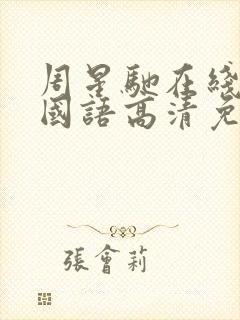 周星馳在綫
國語高清免
張會莉